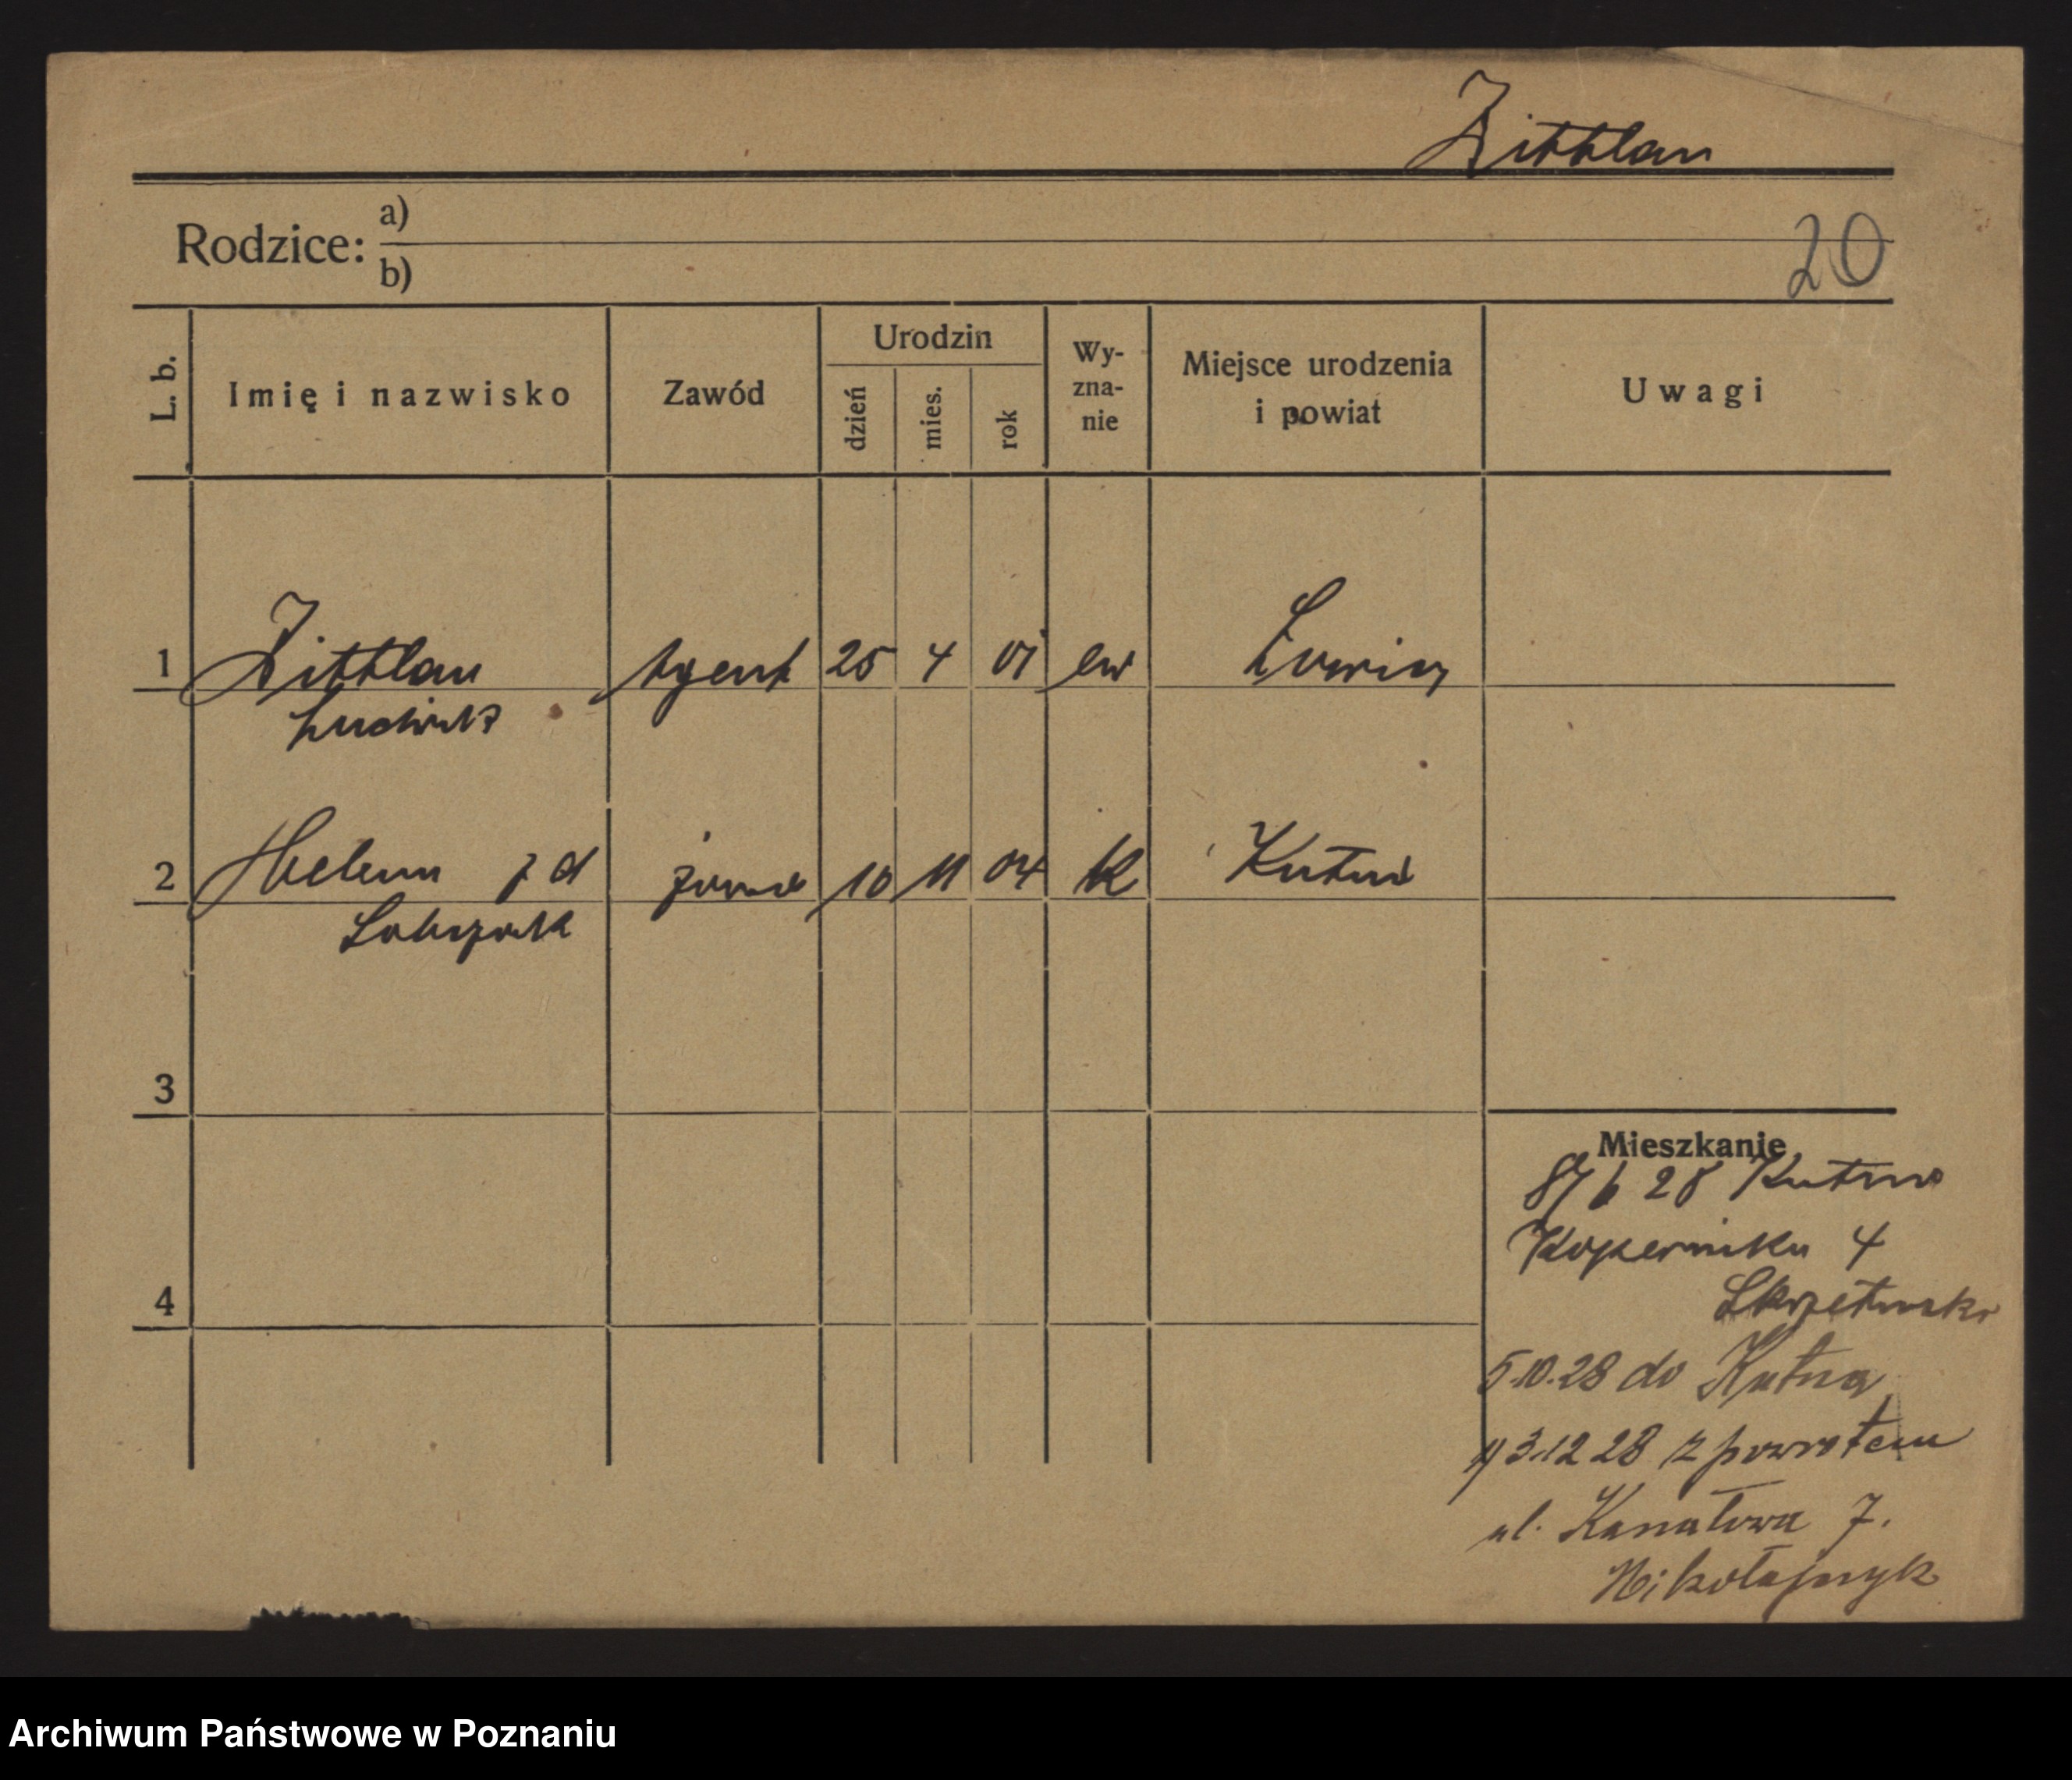 Zittlau
Rodzice: a)
b)
20
L. b. Imię i nazwisko Zawód Urodzin dzień mies. rok Wy-zna-nie Miejsce urodzenia i powiat Uwagi
1 Zittlau Agent 25 4 01 ew
Ludwik
2 Helena z d żona 10 11 04 k Kutno
3
Mieszkanie
28 Kutno
Kopernika 4
4
5.10.28 do Kutna
3.12 28 z powrotem
ul. Kanałowa 7.
Mikołajczyk
Archiwum Państwowe w Poznaniu